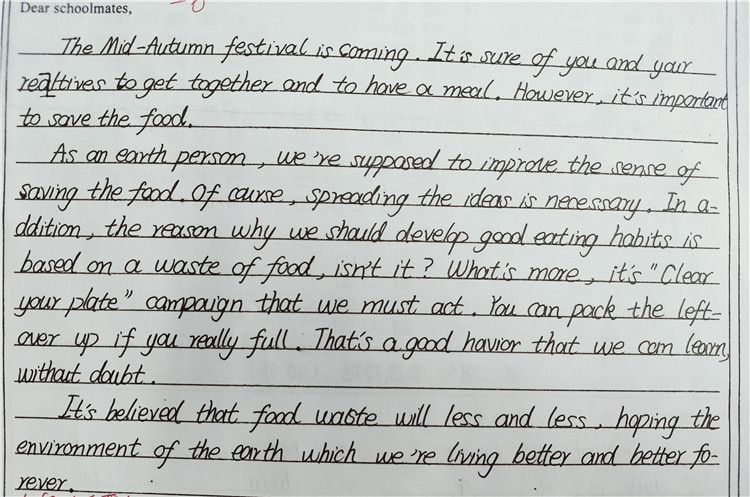 Dear schoolmates,
The Mid-Autumn festival is coming. It is sure of you and your
realttives to get together and to have a meal. However, it's important
to save the food.
As an earth person, we're supposed to improve the sense of
saving the food. Of course, spreading the ideas is necessary. In a-
ddition, the reason why we should develop good eating habits is
based on a waste of food, isn't it? What's more, it's "Clear
your plate" campaign that we must act. You can pack the left-
over up if you really full. That's a good havior that we can learn,
without doubt.
It's believed that food waste will less and less, hoping the
environment of the earth which we're living better and better fo-
rever.